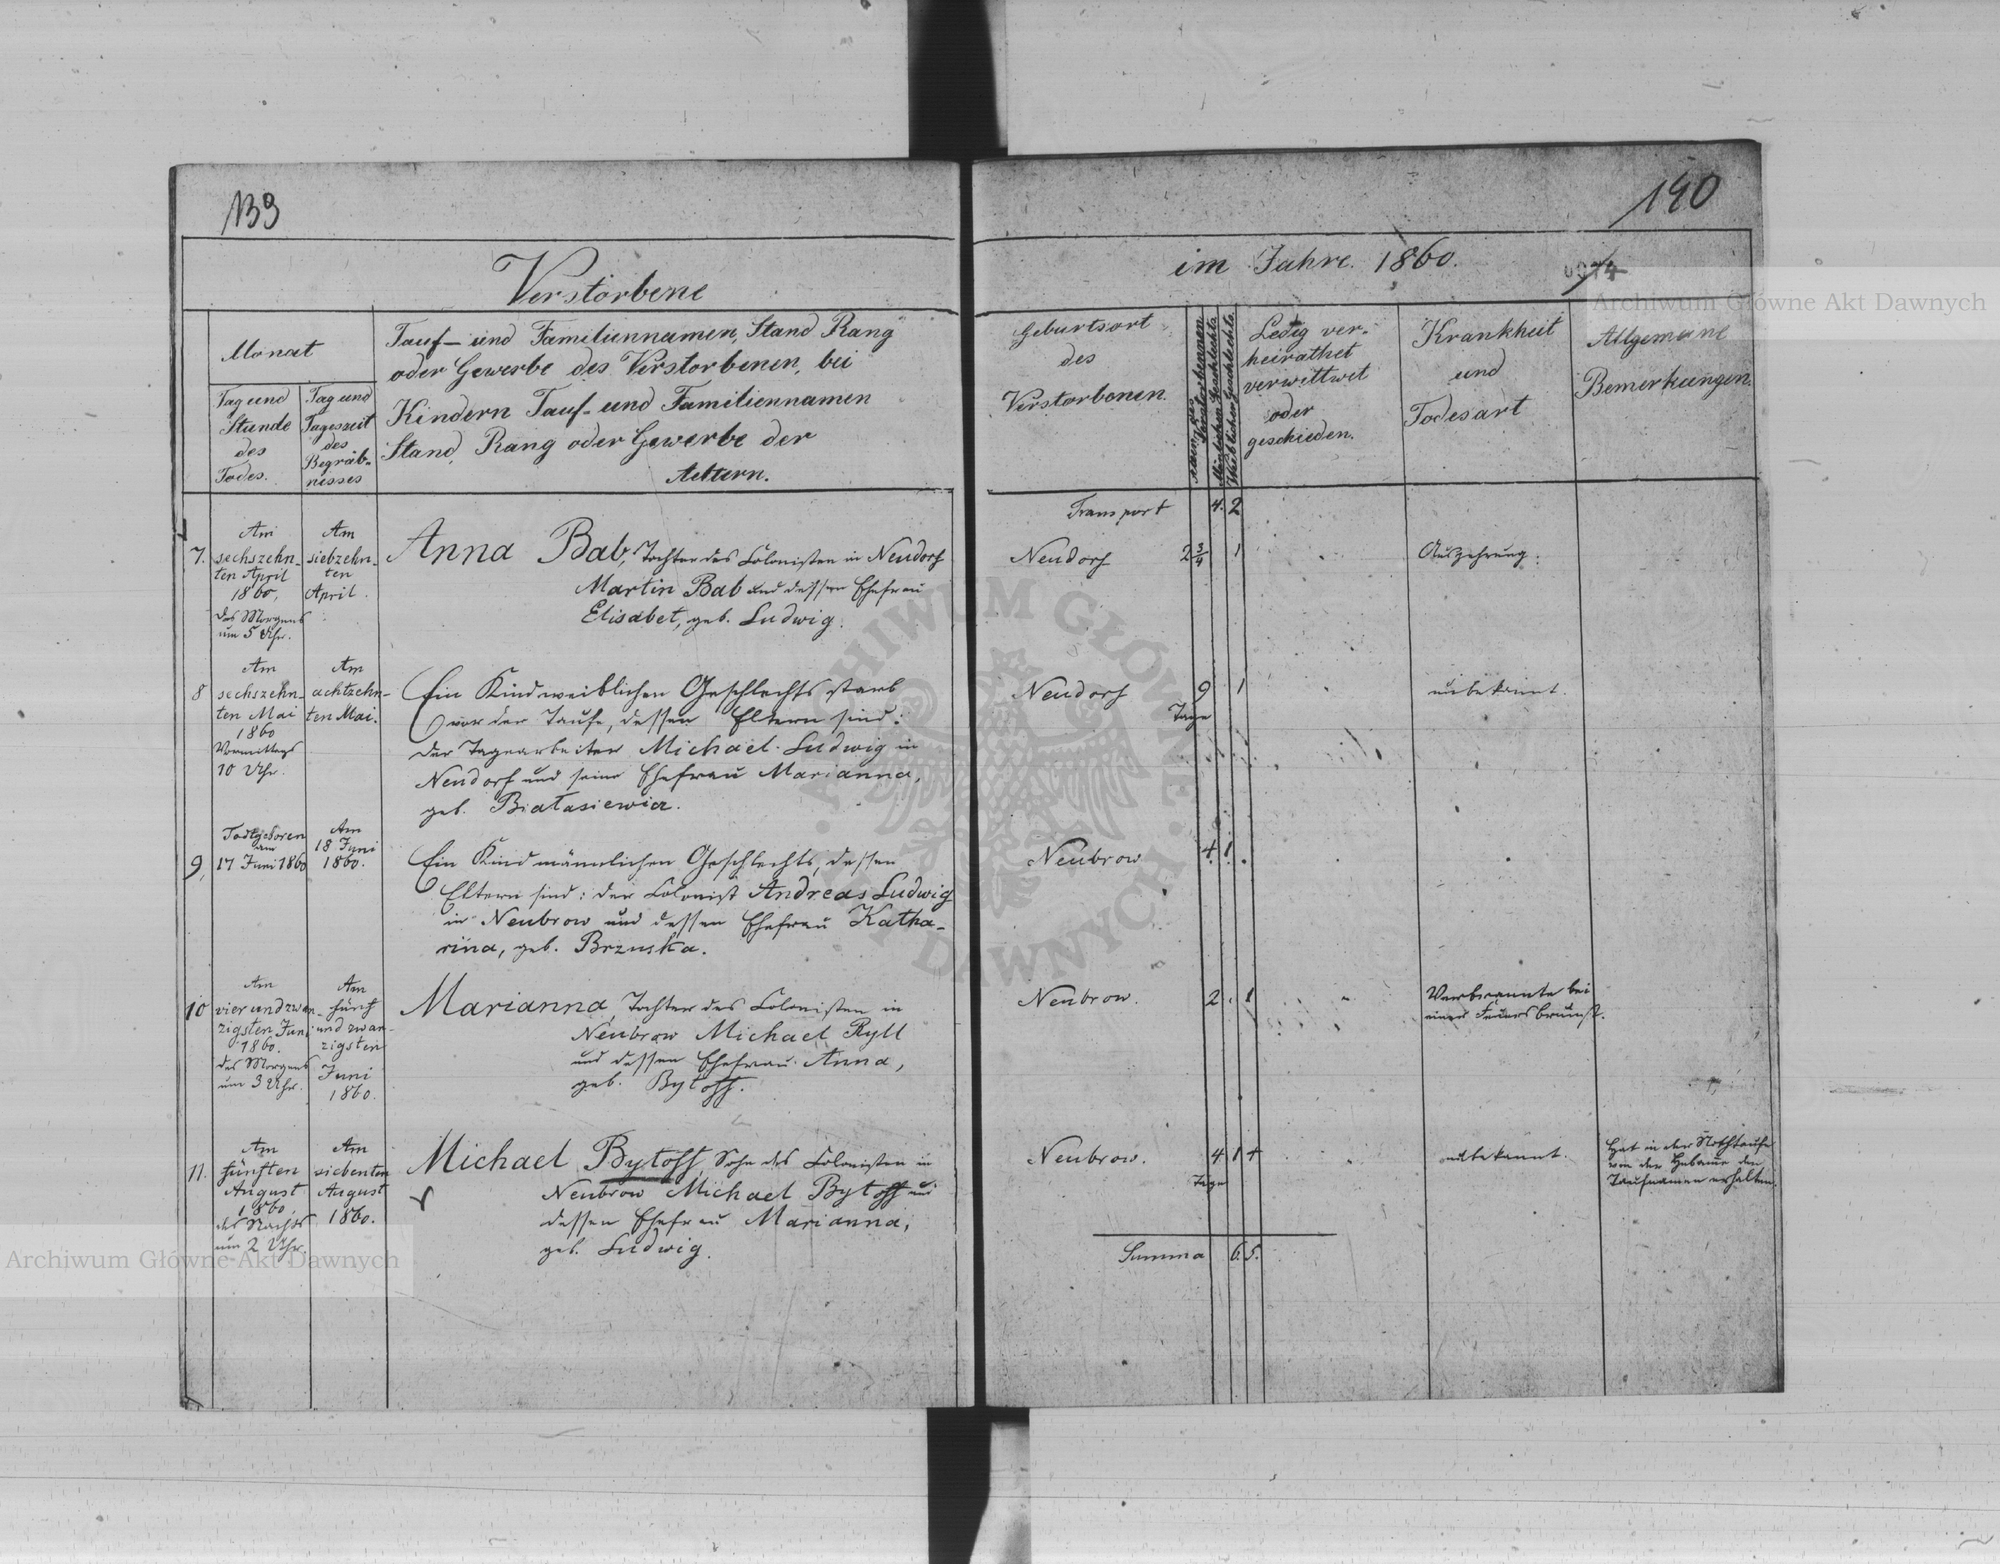 139
Verstorbene
Monat
Tag und
Stunde
des
Todes.
Tag und
Tageszeit
des
Begräb-
nisses
Tauf- und Familiennamen, Stand Rang
oder Gewerbe des Verstorbenen, bei
Kindern Tauf- und Familiennamen
Stand, Rang oder Gewerbe der
Aeltern.
7.
Am
sechszehn-
ten April
1860,
des Morgens
um 5 Uhr.
Am
siebzehn-
ten
April.
Anna Bab, Tochter des Colonisten in Neudorf
Martin Bab und dessen Ehefrau
Elisabet, geb. Ludwig.
8
Am
sechszehn-
ten Mai
1860
Vormittags
10 Uhr.
Am
achtzehn-
ten Mai.
Ein Kind weiblichen Geschlechts starb
vor der Taufe, dessen Eltern sind:
der Tagearbeiter Michael Ludwig in
Neudorf und seine Ehefrau Marianna,
geb. Białasiewicz.
9,
Todtgeboren
am
17 Juni 1860
Am
18 Juni
1860.
Ein Kind männlichen Geschlechts, dessen
Eltern sind: der Colonist Andreas Ludwig
in Neubrow und dessen Ehefrau Katha-
rina, geb. Brzuska.
10
Am
vier und zwan-
zigsten Juni
1860.
des Morgens
um 3 Uhr.
Am
fünf
und zwan-
zigsten
Juni
1860.
Marianna, Tochter des Colonisten in
Neubrow Michael Ryll
und dessen Ehefrau Anna,
geb. Bytoff.
11.
Am
fünften
August
1860,
des Nachts
um 2 Uhr.
Am
siebenten
August
1860.
Michael Bytoff, Sohn des Colonisten in
Neubrow Michael Bytoff und
dessen Ehefrau Marianna,
geb. Ludwig.
140
im Jahre 1860.
Geburtsort
des
Verstorbenen.
Verstorbennen
Männlichen Geschlechts
Weiblichen Geschlechts.
Ledig ver-
heirathet
verwittwet
oder
geschieden.
Krankheit
und
Todesart
Allgemeine
Bemerkungen.
Transport 4. 2
Neudorf 2 3/4 1 Auszehrung.
Neudorf 9 1 unbekannt.
Tage
Neubrow 4. 1.
Neubrow. 2 1 Verbrannte bei
einer Feuersbrunst.
Neubrow. 4 1 + unbekannt.
Tage
Hat in der Nothtaufe
von der Hebame den
Taufnamen erhalten.
Summa 6. 5.
Archiwum Główne Akt Dawnych
Archiwum Główne Akt Dawnych
ARCHIWUM GŁÓWNE AKT DAWNYCH